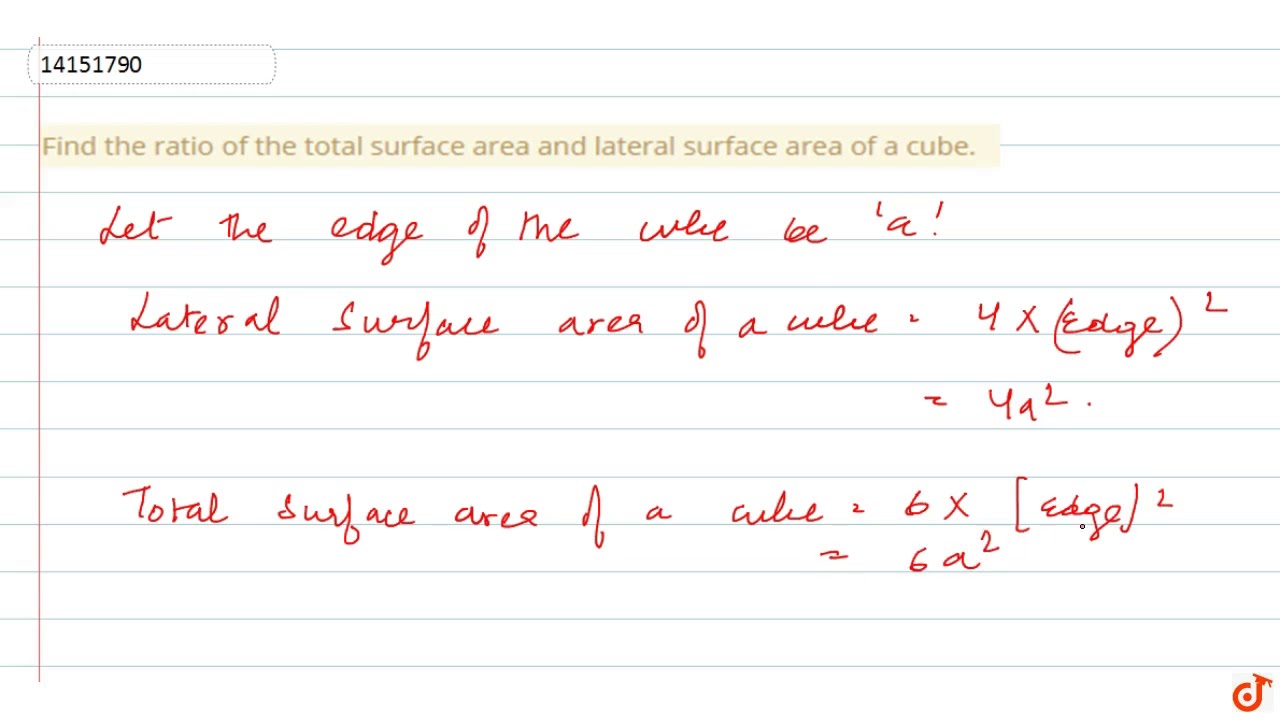 14151790
Find the ratio of the total surface area and lateral surface area of a cube.
Let the edge of the cube be 'a'
Lateral surface area of a cube = 4 X (Edge)²
= 4a².
Total surface area of a cube = 6 X [Edge)²
= 6a²